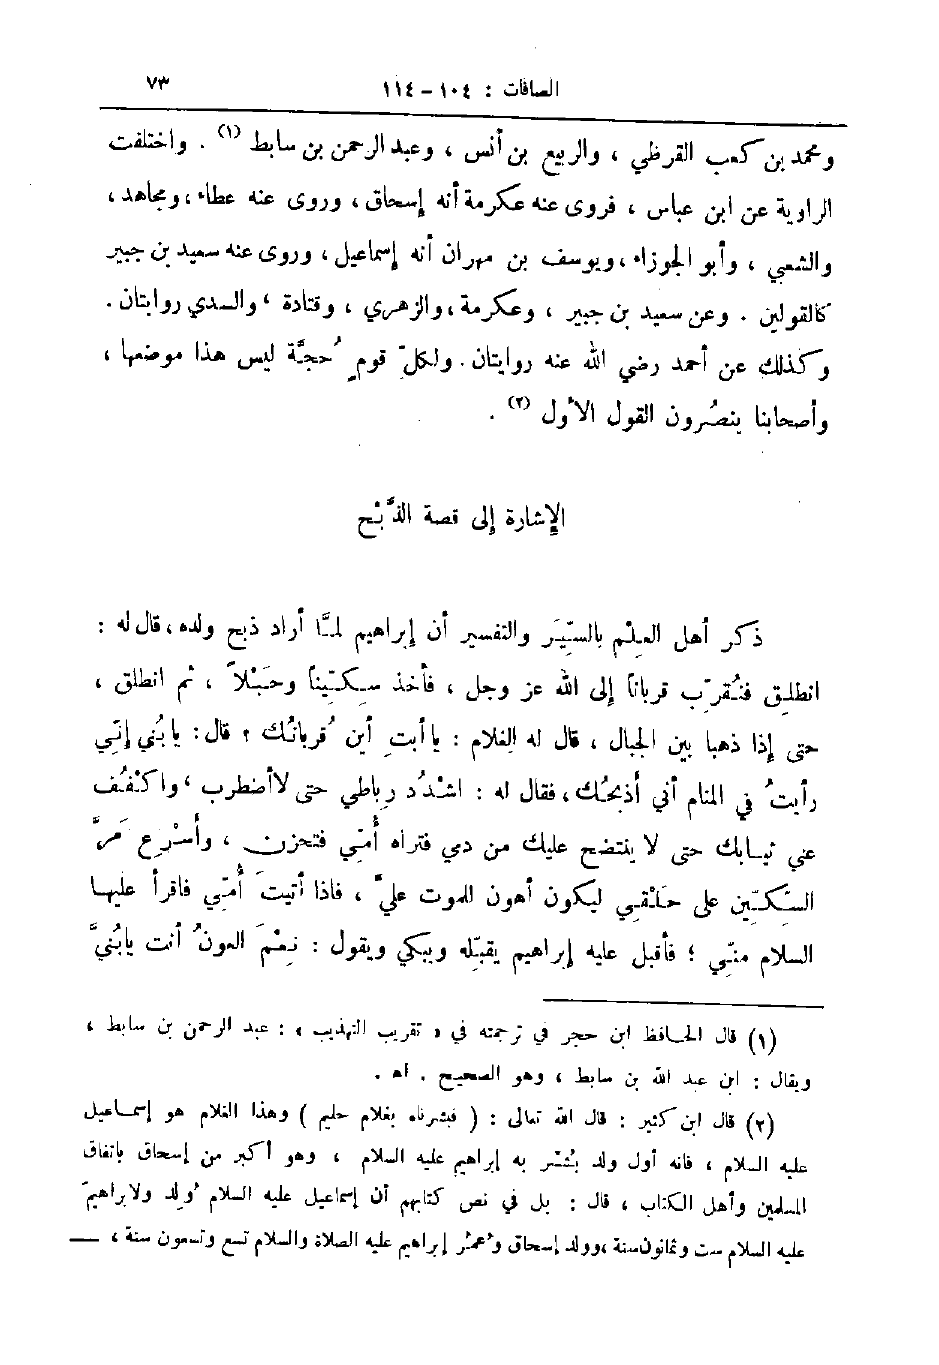 الصافات : ١٠٤ – ١١٤ ٧٣
ومحمد بن كعب القرظي ، والربيع بن أنس ، وعبد الرحمن بن سابط (١) . واختلفت
الراوية عن ابن عباس ، فروى عنه عكرمة أنه إسحاق ، وروى عنه عطاء ، ومجاهد ،
والشعبي ، وأبو الجوزاء ، ويوسف بن مهران أنه إسماعيل ، وروى عنه سعيد بن جبير
كالقولين . وعن سعيد بن جبير ، وعكرمة ، والزهري ، وقتادة ، والسدي روايتان .
وكذلك عن أحمد رضي الله عنه روايتان . ولكلّ قومٍ حُجَّة ليس هذا موضعها ،
وأصحابنا ينصُرون القول الأول (٢) .
الإشارة إلى قصة الذَّبْح
ذكر أهل العِلْم بالسِّيَر والتفسير أن إبراهيم لمَّا أراد ذبح ولده ، قال له :
انطلِق فنُقرِّب قرباناً إلى الله عز وجل ، فأخذ سِكِّيناً وحَبْلاً ، ثم انطلق ،
حتى إذا ذهبا بين الجبال ، قال له الغلام : يا أبتِ أين قُربانُك ؟ قال : يابُني إنّي
رأيتُ في المنام أني أذبحُك ، فقال له : اشْدُد رِباطي حتى لاأضطرب ، واكْفُف
عني ثيابك حتى لا ينتضح عليك من دمي فتراه أُمّي فتحزن ، وأسْرِع مَرَّ
السِّكِّين على حَلْقي ليكون أهون للموت عليّ ، فاذا أتيتَ أُمّي فاقرأ عليها
السلام منّي ؛ فأقبل عليه إبراهيم يقبّله ويبكي ويقول : نِعْمَ العونُ أنت يابُنيَّ
(١) قال الحافظ ابن حجر في ترجمته في « تقريب التهذيب » : عبد الرحمن بن سابط ،
ويقال : ابن عبد الله بن سابط ، وهو الصحيح . اهـ .
(٢) قال ابن كثير : قال الله تعالى : ( فبشرناه بغلام حليم ) وهذا الغلام هو إسماعيل
عليه السلام ، فانه أول ولد بُشّر به إبراهيم عليه السلام ، وهو أكبر من إسحاق باتفاق
المسلمين وأهل الكتاب ، قال : بل في نص كتابهم أن إسماعيل عليه السلام وُلد ولإبراهيمَ
عليه السلام ست وثمانون سنة ، وولد إسحاق وعُمْرُ إبراهيم عليه الصلاة والسلام تسع وتسعون سنة ، —